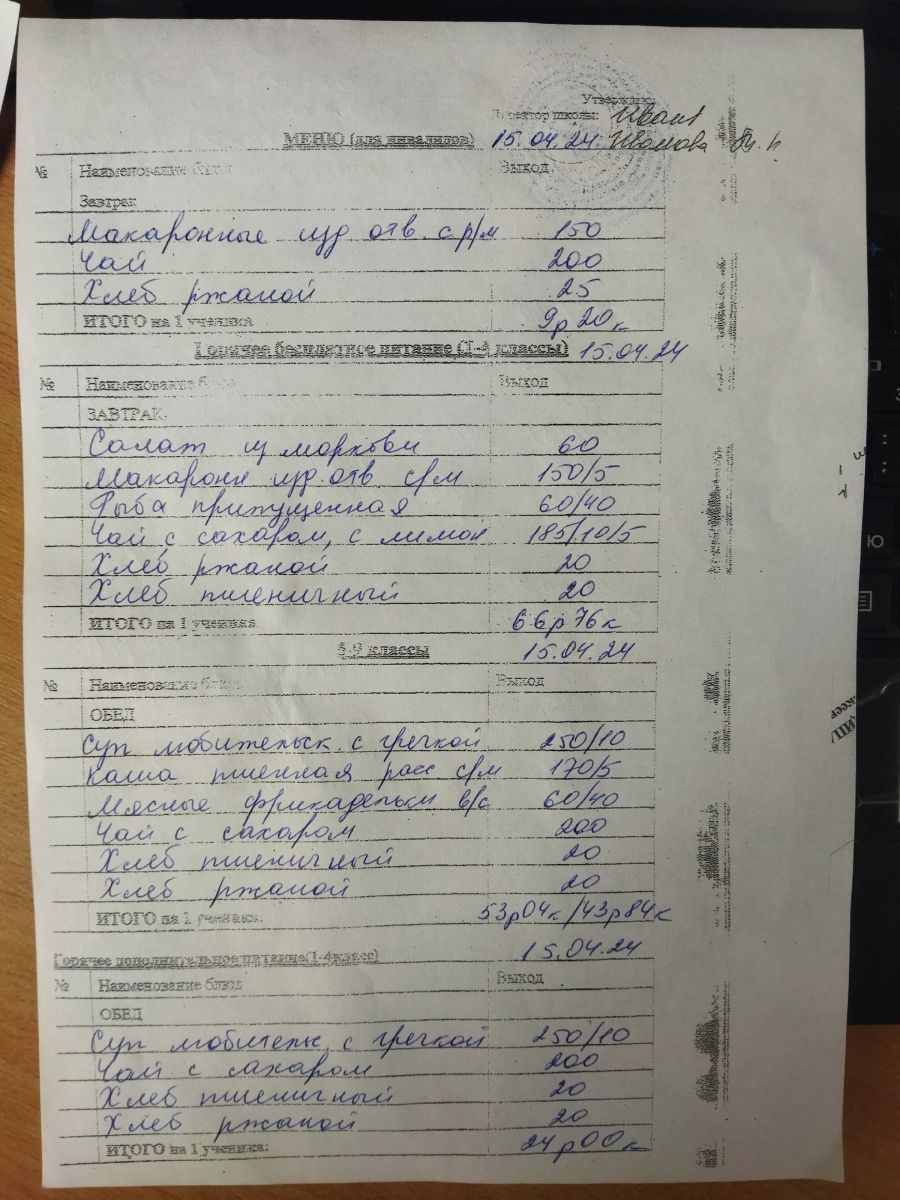 Утверждаю
Директор школы:
МЕНЮ (для инвалидов) 15.04.24.
№ Наименование блюд Выход
Завтрак
Макаронные изд отв с р/м 150
Чай 200
Хлеб ржаной 25
ИТОГО на 1 ученика 9р 20к
Горячее бесплатное питание (1-4 классы) 15.04.24
№ Наименование блюд Выход
ЗАВТРАК
Салат из моркови 60
Макарон изд отв с/м 150/5
Рыба припущенная 60/40
Чай с сахаром, с лимон 185/10/5
Хлеб ржаной 20
Хлеб пшеничный 20
ИТОГО на 1 ученика 66р76к
5-9 классы 15.04.24
№ Наименование блюд Выход
ОБЕД
Суп любительск с гречкой 250/10
Каша пшенная расс с/м 170/5
Мясные фрикадельки в/с 60/40
Чай с сахаром 200
Хлеб пшеничный 20
Хлеб ржаной 20
ИТОГО на 1 ученика: 53р04к/43р84к
Горячее дополнительное питание(1-4класс) 15.04.24
№ Наименование блюд Выход
ОБЕД
Суп любительск. с гречкой 250/10
Чай с сахаром 200
Хлеб пшеничный 20
Хлеб ржаной 20
ИТОГО на 1 ученика: 24р00к
Ю